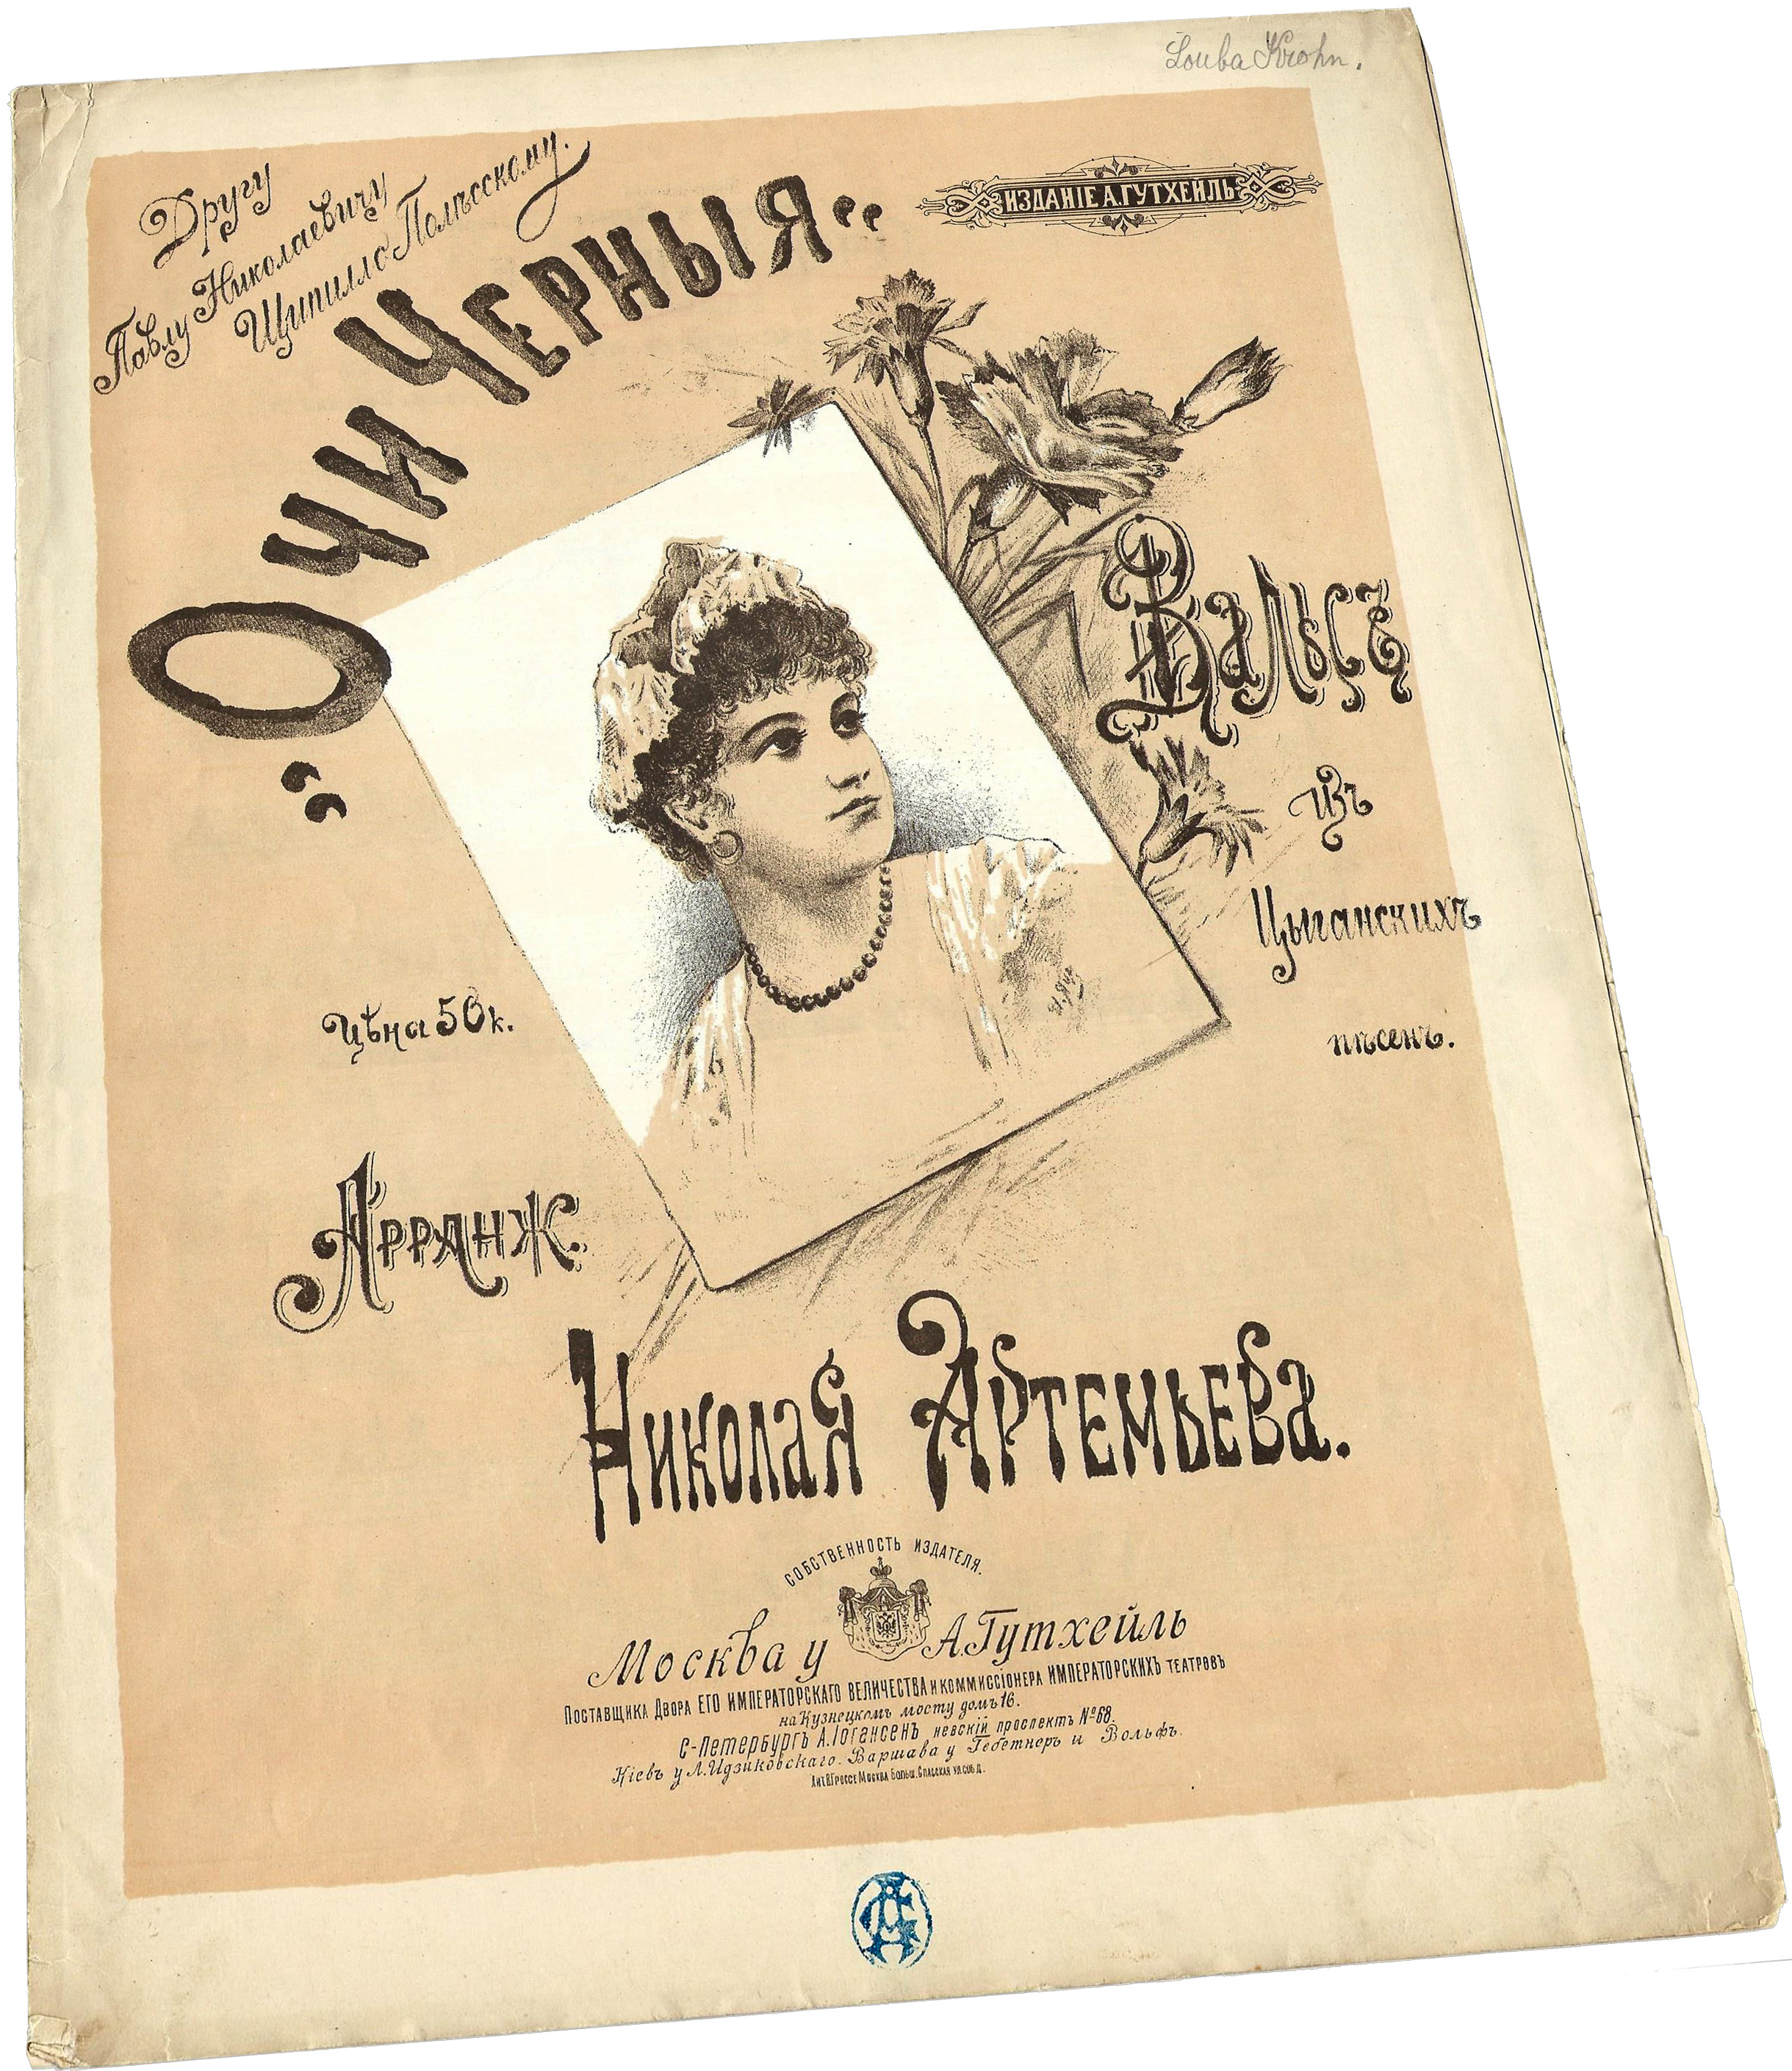 Louba Krohn.
Другу
Павлу Николаевичу
Щипилло-Полѣсскому.
ИЗДАНІЕ А. ГУТХЕЙЛЬ
„Очи Черныя“
Вальсъ
изъ
Цыганскихъ
пѣсенъ.
Цѣна 50 к.
Арранж.
Николая Артемьева.
СОБСТВЕННОСТЬ ИЗДАТЕЛЯ.
Москва у А. Гутхейль
Поставщика Двора ЕГО ИМПЕРАТОРСКАГО ВЕЛИЧЕСТВА и коммиссіонера ИМПЕРАТОРСКИХЪ театровъ
на Кузнецкомъ мосту домъ 16.
С-Петербургъ А. Іогансенъ невскій проспектъ № 68.
Кіевъ у Л. Идзиковскаго. Варшава у Гебетнеръ и Вольфъ.
Лит. В. Гроссе Москва Больш. Спасская ул. соб. д.